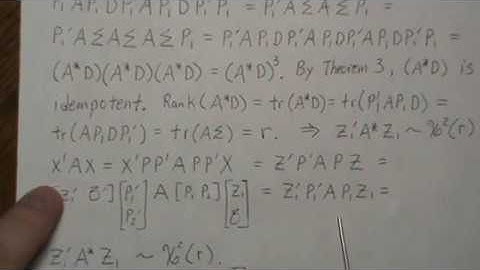 P₁'AP₁DP₁'AP₁DP₁'P₁ = P₁'AΣAΣP₁ =
P₁'AΣAΣAΣP₁ = P₁'AP₁DP₁'AP₁DP₁'AP₁DP₁'P₁ =
(A*D)(A*D)(A*D) = (A*D)³. By Theorem 3, (A*D) is
idempotent. Rank(A*D) = tr(A*D) = tr(P₁'AP₁D) =
tr(AP₁DP₁') = tr(AΣ) = r. ⇒ Z₁'A*Z₁ ~ χ²(r)
X'AX = X'PP'APP'X = Z'P'APZ =
[Z₁' 0'] [P₁' P₂'] A [P₁ P₂] [Z₁ 0] = Z₁'P₁'AP₁Z₁ =
Z₁'A*Z₁ ~ χ²(r).